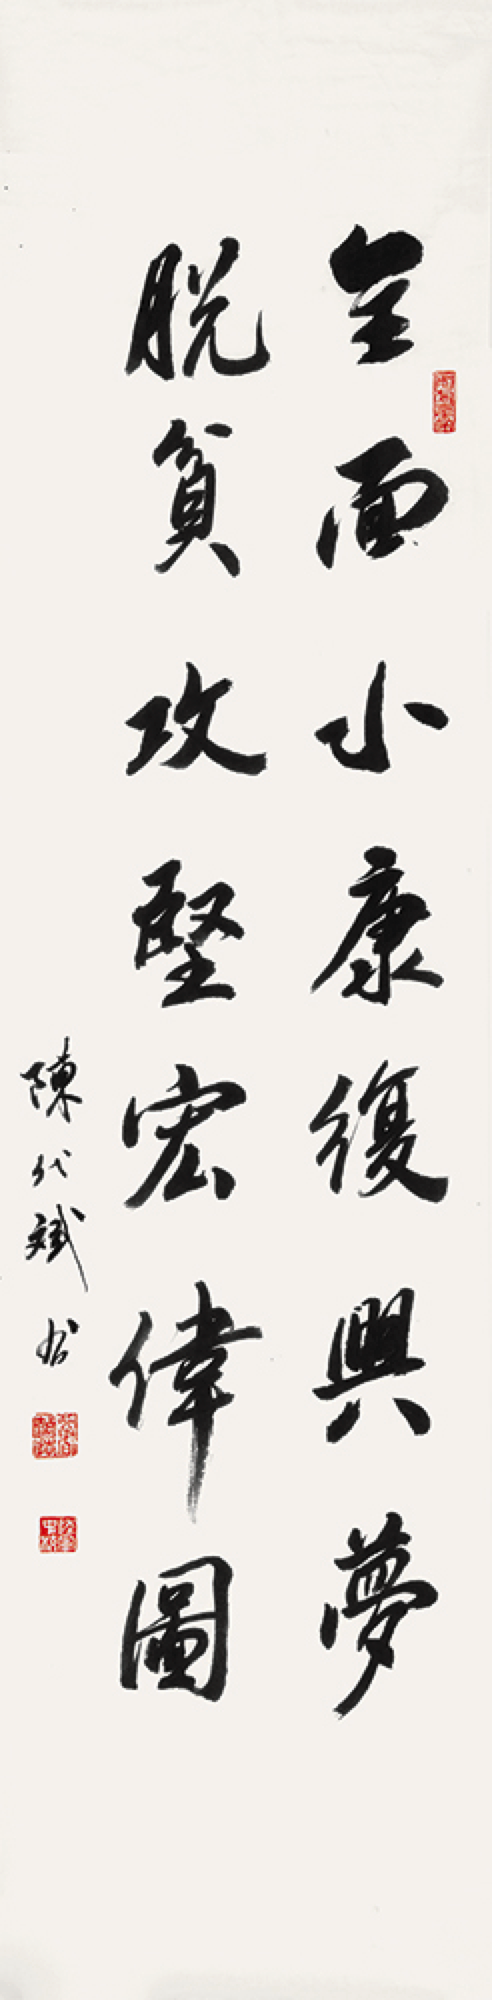 全面小康復興夢
脱貧攻堅宏偉圖
陳代斌书